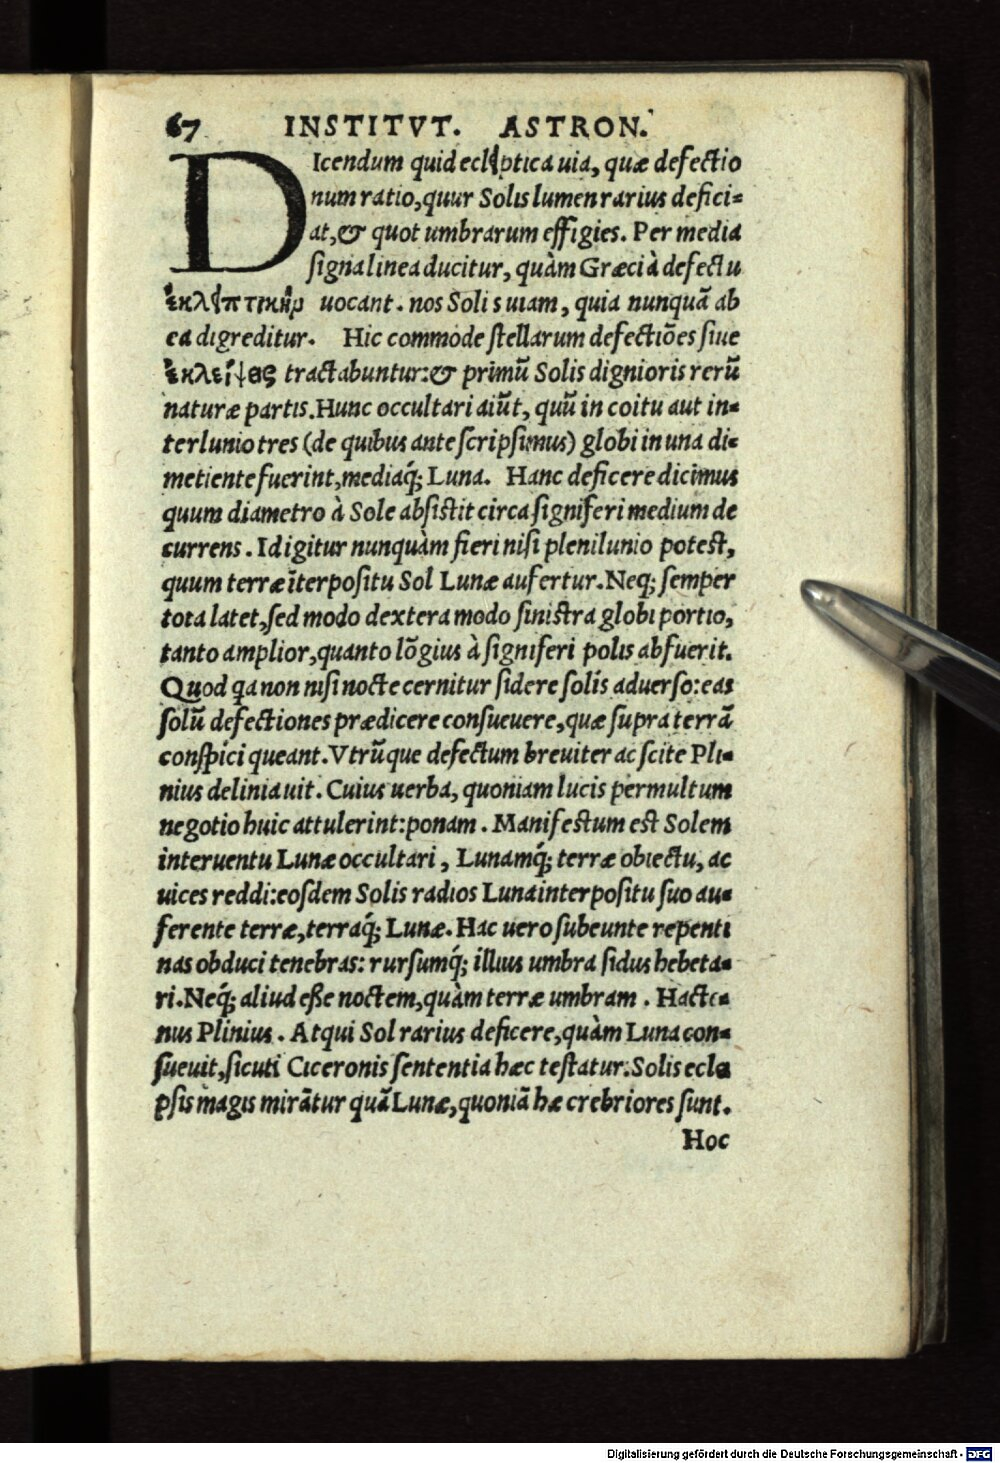 67 INSTITVT. ASTRON.
DIcendum quid ecliptica uia, quæ defectio
num ratio, quur Solis lumen rarius defici-
at, & quot umbrarum effigies. Per media
signa linea ducitur, quàm Græci à defectu
ἐκλειπτικὴν uocant. nos Solis uiam, quia nunquã ab
ea digreditur. Hic commode stellarum defectiões siue
ἐκλείψεις tractabuntur: & primũ Solis dignioris rerũ
naturæ partis. Hunc occultari aiũt, quũ in coitu aut in-
terlunio tres (de quibus ante scripsimus) globi in una di-
metiente fuerint, mediaq́; Luna. Hanc deficere dicimus
quum diametro à Sole absistit circa signiferi medium de
currens. Id igitur nunquàm fieri nisi plenilunio potest,
quum terræ ĩterpositu Sol Lunæ aufertur. Neq; semper
tota latet, sed modo dextera modo sinistra globi portio,
tanto amplior, quanto lõgius à signiferi polis abfuerit.
Quod qa non nisi nocte cernitur sidere solis aduerso: eas
solũ defectiones prædicere consueuere, quæ supra terrã
conspici queant. Vtrũque defectum breuiter ac scite Pli-
nius deliniauit. Cuius uerba, quoniam lucis permultum
negotio huic attulerint: ponam. Manifestum est Solem
interuentu Lunæ occultari, Lunamq́; terræ obiectu, ac
uices reddi: eosdem Solis radios Luna interpositu suo au-
ferente terræ, terraq́; Lunæ. Hac uero subeunte repenti
nas obduci tenebras: rursumq́; illius umbra sidus hebeta-
ri. Neq́; aliud esse noctem, quàm terræ umbram. Hacte-
nus Plinius. Atqui Sol rarius deficere, quàm Luna con-
sueuit, sicuti Ciceronis sententia hæc testatur: Solis ecle
psis magis mirãtur quã Lunæ, quoniã hæ crebriores sunt.
Hoc
Digitalisierung gefördert durch die Deutsche Forschungsgemeinschaft - DFG